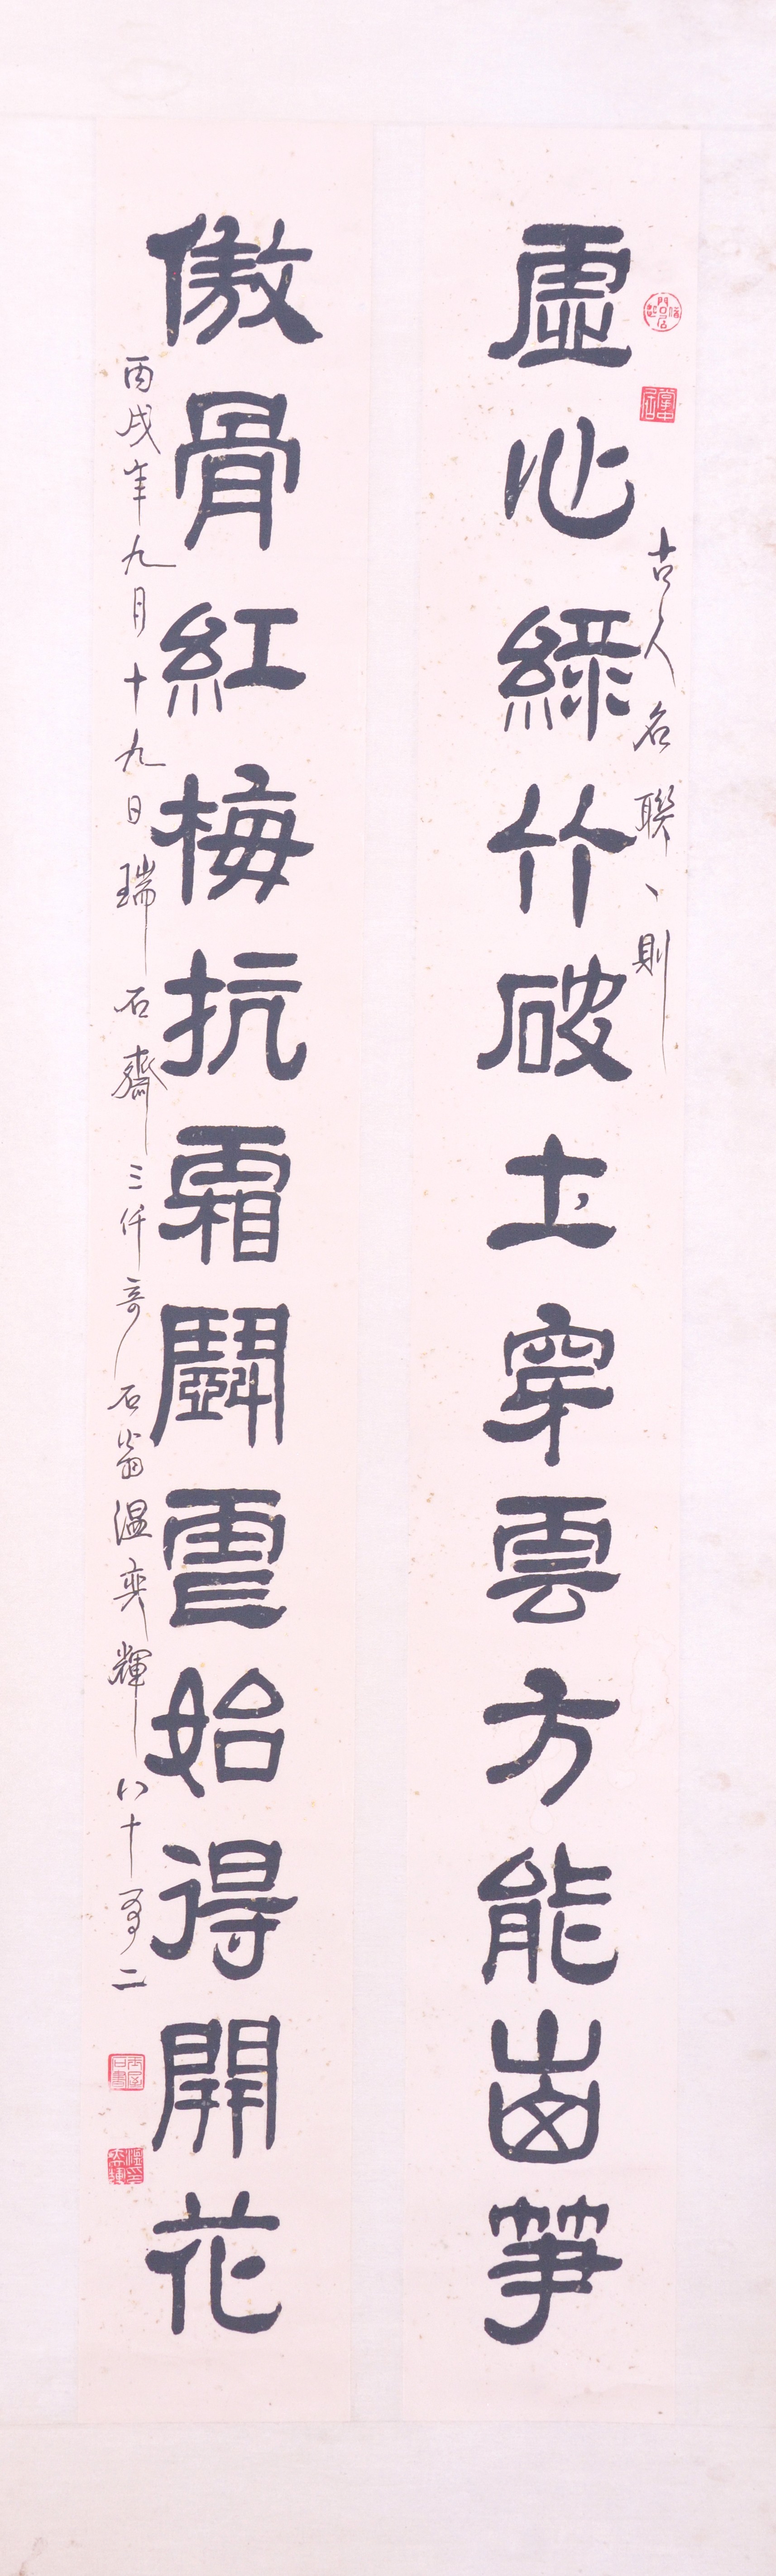 古人名聯、則
虛心綠竹破土穿雲方能出笋
傲骨紅梅抗霜鬪雪始得開花
丙戌年九月十九日瑞石齋三仟奇石翁温奕輝八十有二